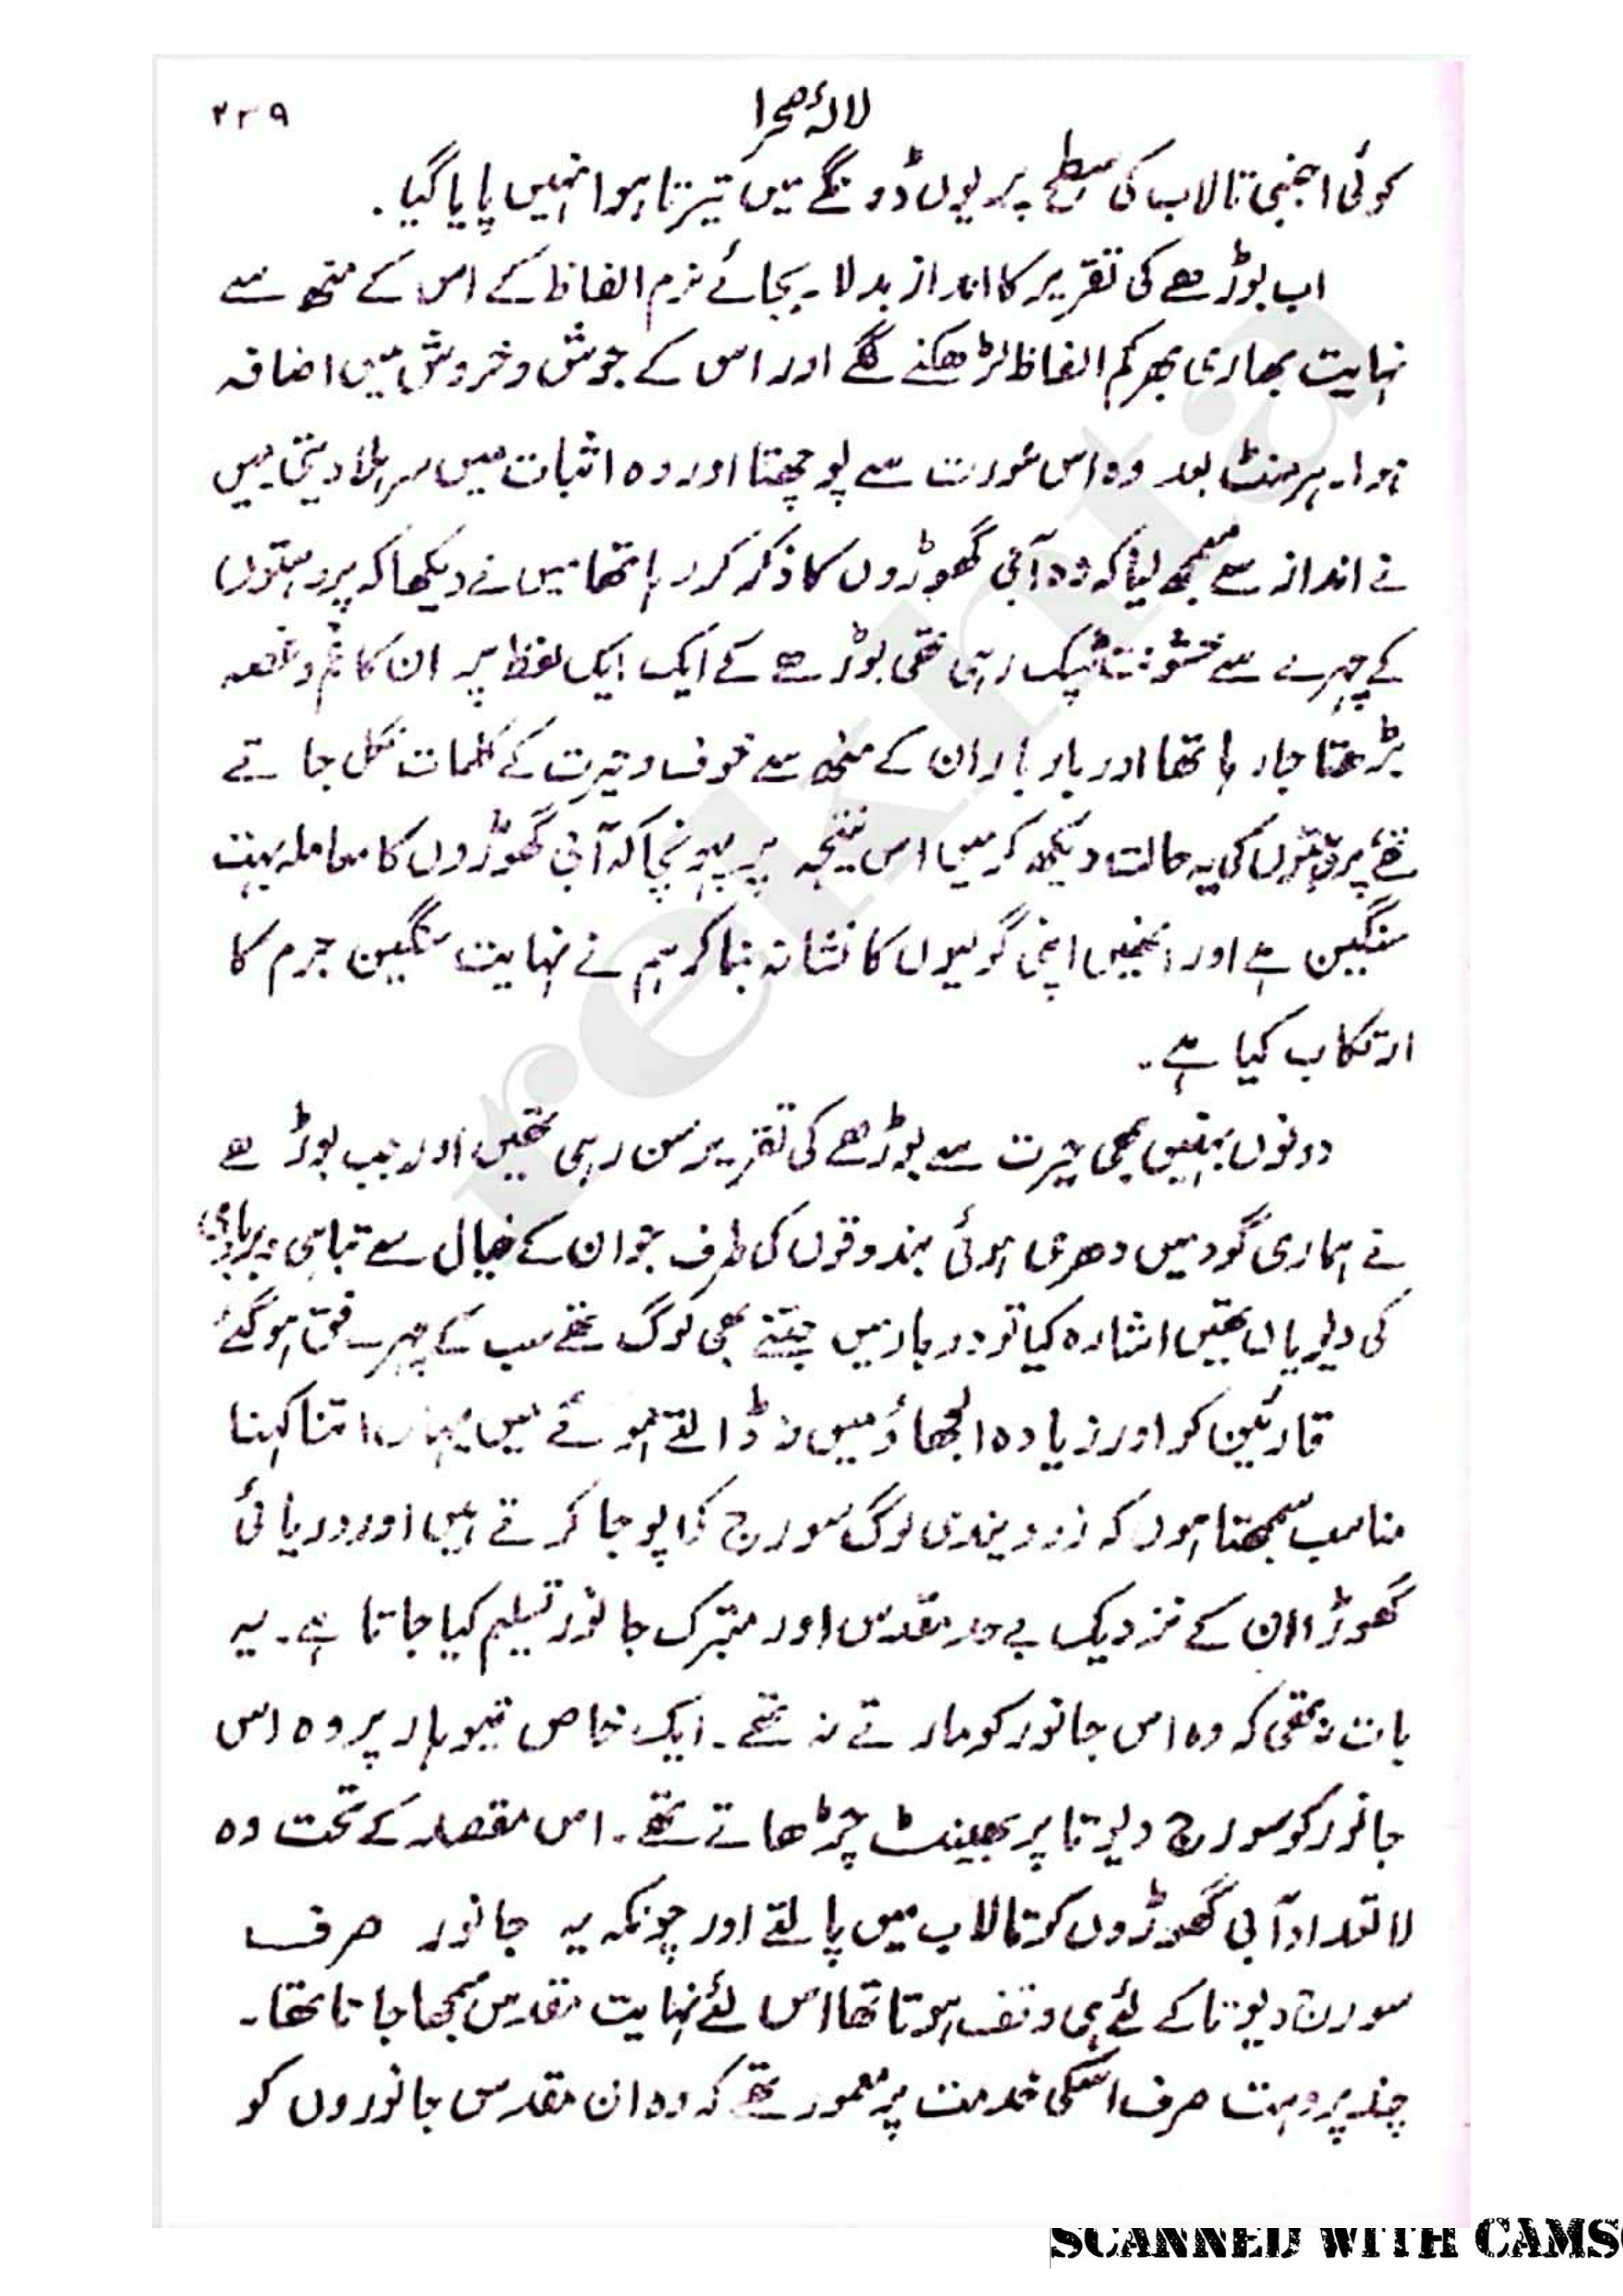 لالۂ صحرا ۲۲۹
کوئی اجنبی تالاب کی سطح پر یوں ڈونگے میں تیرتا ہوا نہیں پایا گیا۔
اب بوڑھے کی تقریر کا انداز بدلا۔ بجائے نرم الفاظ کے اس کے منھ سے
نہایت بھاری بھرکم الفاظ لڑھکنے لگے اور اس کے جوش و خروش میں اضافہ
ہوا۔ ہر منٹ بعد وہ اس عورت سے پوچھتا اور وہ اثبات میں سر ہلا دیتی میں
نے انداز سے سمجھ لیا کہ وہ آبی گھوڑوں کا ذکر کر رہا تھا میں نے دیکھا کہ پروہتوں
کے چہرے سے خشونت ٹپک رہی تھی بوڑھے کے ایک ایک لفظ پر ان کا غم و غصہ
بڑھتا جا رہا تھا اور بار بار ان کے منھ سے خوف و حیرت کے کلمات نکل جاتے
تھے پروہتوں کی یہ حالت دیکھ کر میں اس نتیجہ پر پہونچا کہ آبی گھوڑوں کا معاملہ بہت
سنگین ہے اور انھیں اپنی گولیوں کا نشانہ بنا کر ہم نے نہایت سنگین جرم کا
ارتکاب کیا ہے۔
دونوں بہنیں بھی حیرت سے بوڑھے کی تقریر سن رہی تھیں اور جب بوڑھے
نے ہماری گود میں دھری ہوئی بندوقوں کی طرف جو ان کے خیال سے تباہی و بربادی
کی دیویاں تھیں اشارہ کیا تو دربار میں جتنے بھی لوگ تھے سب کے چہرے فق ہو گئے
قارئین کو اور زیادہ الجھاؤ میں نہ ڈالتے ہوئے میں یہاں اتنا کہنا
مناسب سمجھتا ہوں کہ زرویندی لوگ سورج کی پوجا کرتے ہیں اور دریائی
گھوڑا ان کے نزدیک بے حد مقدس اور متبرک جانور تسلیم کیا جاتا ہے۔ یہ
بات نہ تھی کہ وہ اس جانور کو مارتے نہ تھے۔ ایک خاص تیوہار پر وہ اس
جانور کو سورج دیوتا پر بھینٹ چڑھاتے تھے۔ اس مقصد کے تحت وہ
لاتعداد آبی گھوڑوں کو تالاب میں پالتے اور چونکہ یہ جانور صرف
سورج دیوتا کے لئے ہی وقف ہوتا تھا اس لئے نہایت مقدس سمجھا جاتا تھا۔
چند پروہت صرف اسکی خدمت پر معمور تھے کہ وہ ان مقدس جانوروں کو
rekhta
SCANNED WITH CAMS